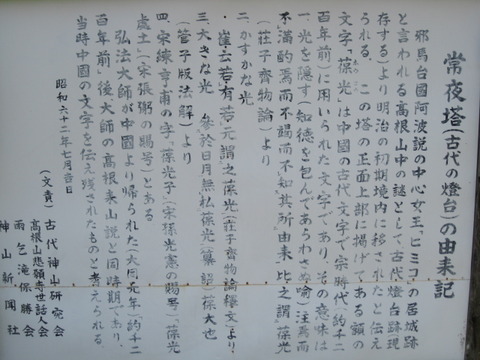 常夜塔(古代の燈台)の由来記
邪馬台國阿波説の中心女王、ヒミコ、の居城跡
と言われる高根山中の謎として古代燈台跡現
存する)より明治の初期境内に移されたと伝え
られる。この塔の正面上部に掲げてある額の
文字、葆光、は中国の古代文字で宗時代(約千二
百年前)に用いられた文字であり、その意味は
一、光を隠す(知徳を包んであらわさぬ喩)注焉而
不満酌焉而不竭而不知其所由来比之謂葆光
(荘子齊物論)より
二、かすかな光
・崖云若有若无謂之葆光(荘子齊物論釋文)より
三、大きな光 參於日月無私葆光(葉韶葆大也
(管子版法解)より
四、宋練亨甫の字「葆光子」(宋孫光憲の賜号)「葆光
處士」(宋張弼の賜号)とある
弘法大師が中國より帰られた(大同元年)約千二
百年前)後大師の高根乗山説と同時期であり、
当時中國の文字を伝え残されたものと考えられる。
昭和六十二年七月吉日
(文責)古代神山研究会
高根山悲願寺世話人会
雨乞滝保勝会
神山新聞社